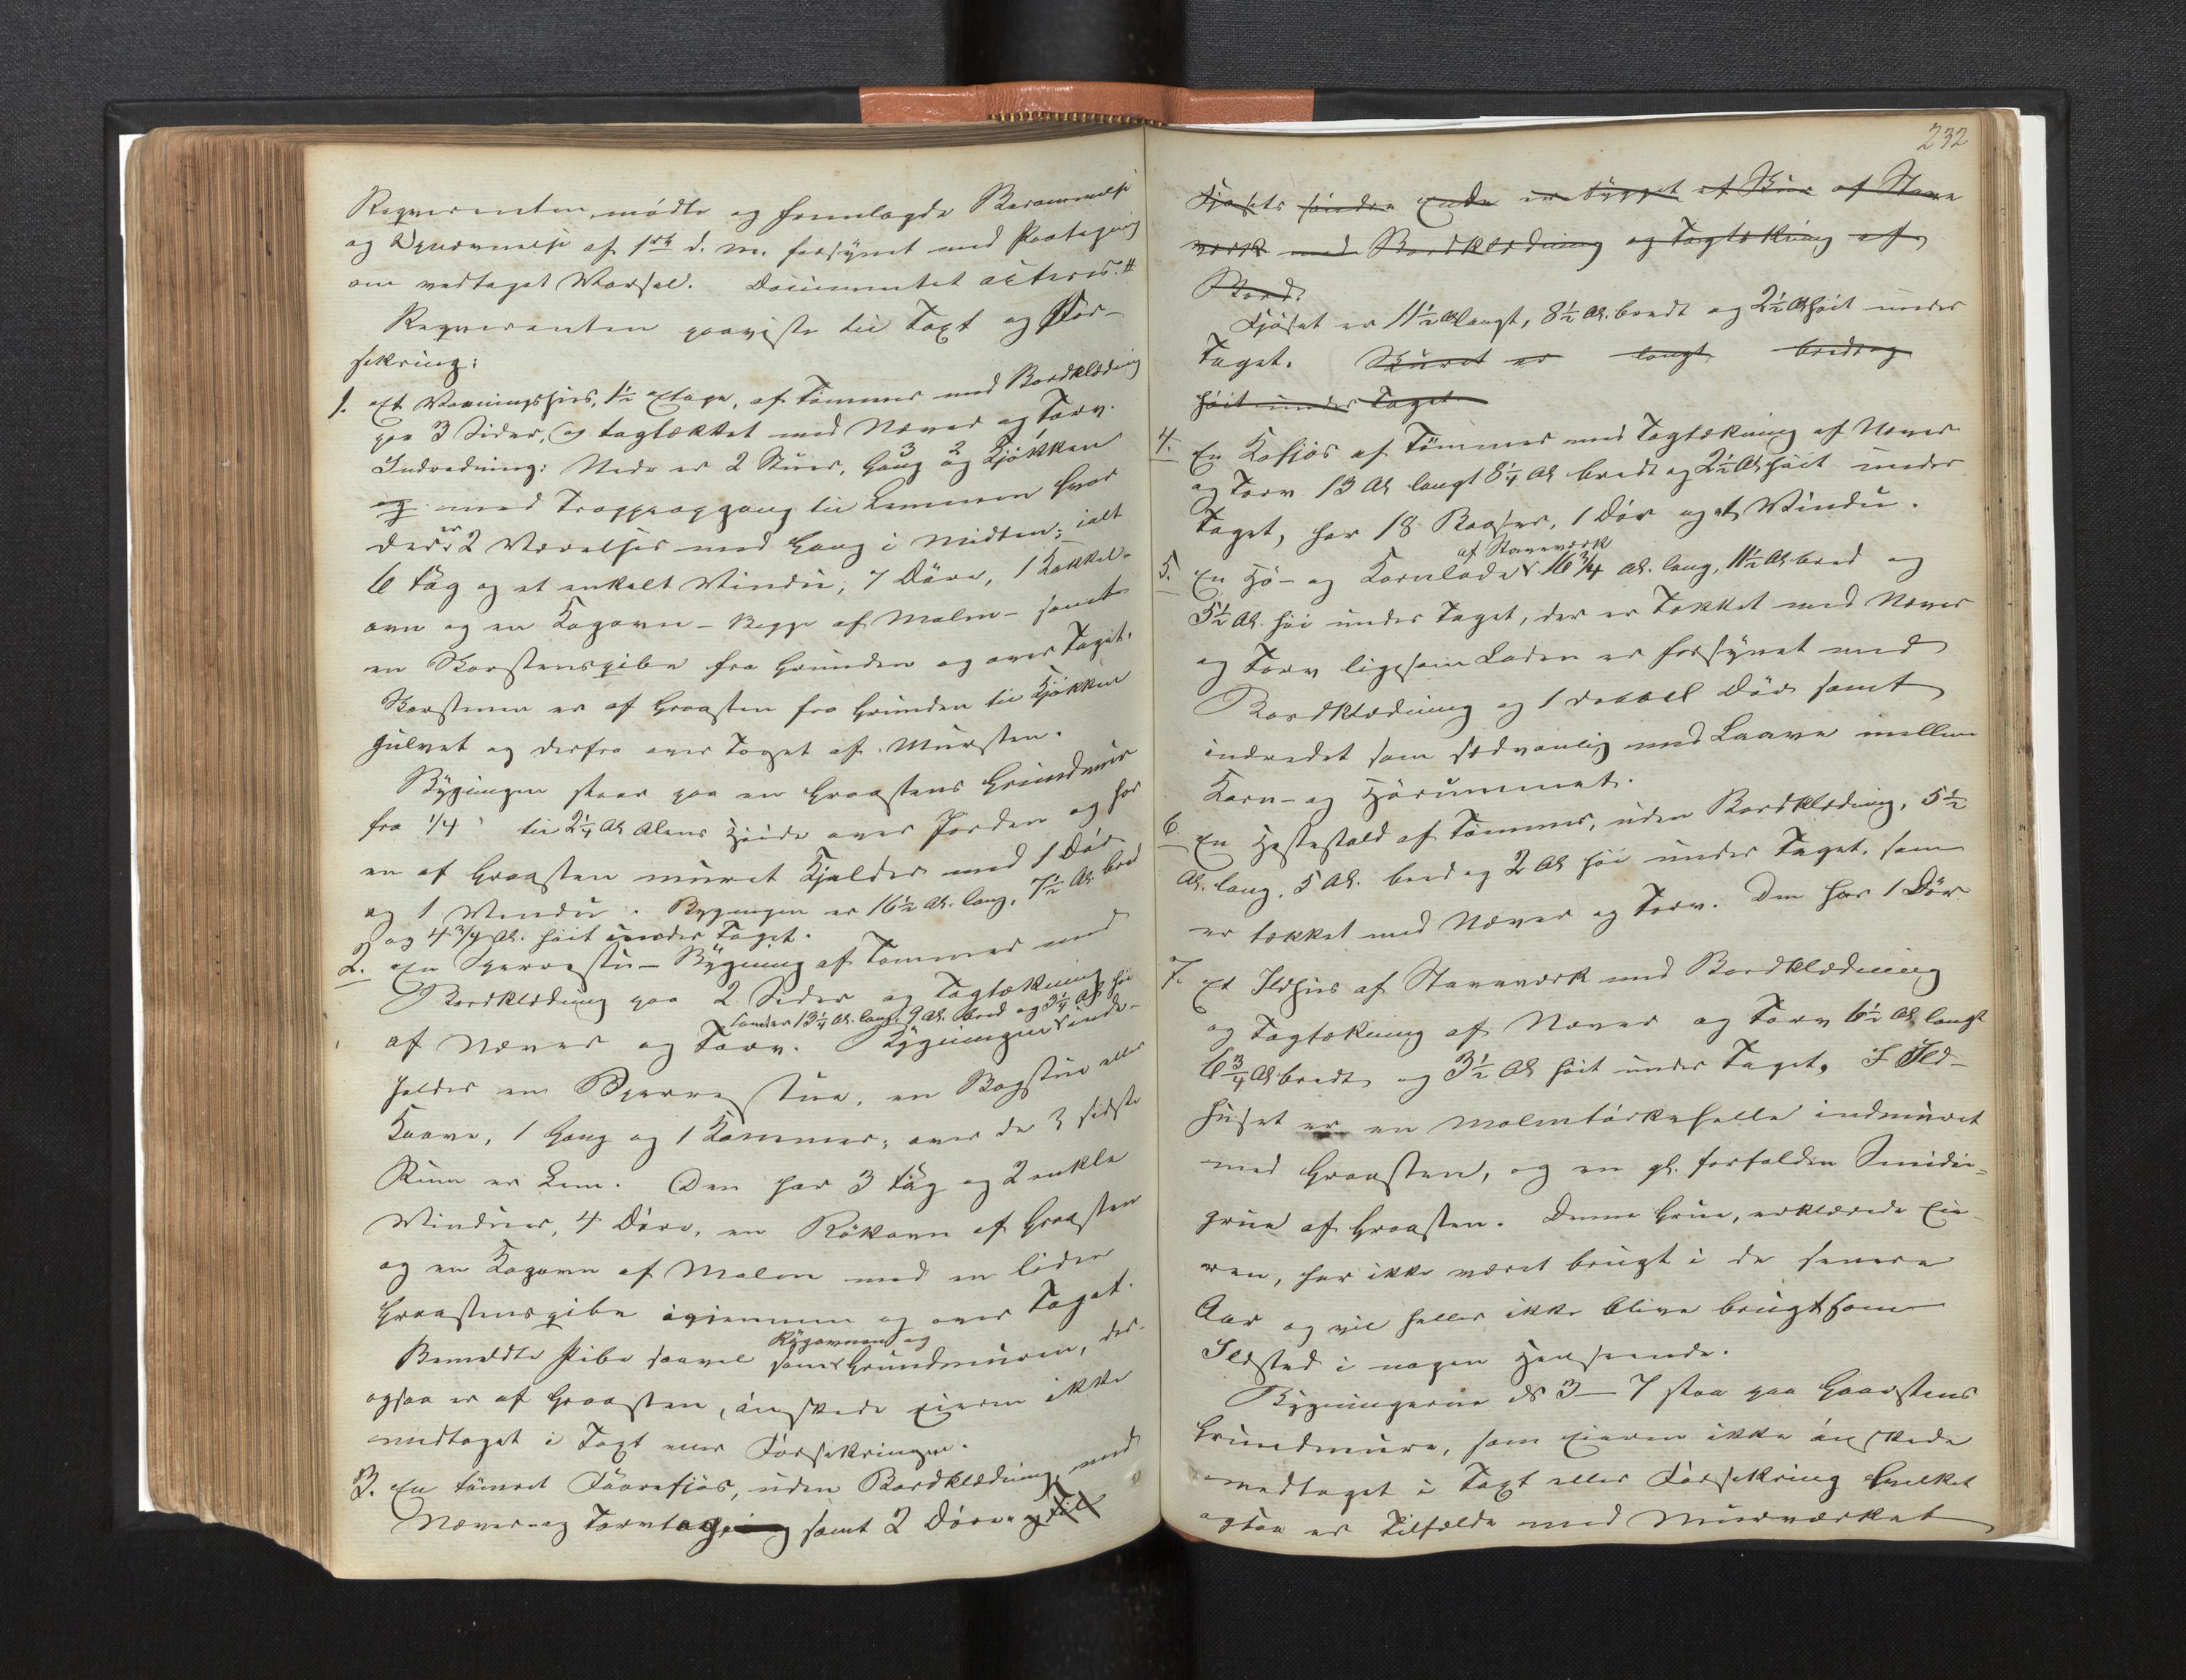 Reqvirenten mødte og fremlagde Berammelse
og Opnævnelse af 1ste d. m. forsynet med Paategning
om vedtaget Varsel. Documentet acteres. #
Reqvirenten paaviste til Taxt og For-
sikring:
1. Et Vaaningshus, 1½ Etage, af Tømmer med Bordklædning
paa 3 Sider, og tagtækket med Næver og Torv.
Indredning: Nede er 2 Stuer, Gang og Kjøkken
og med Trappeopgang til Lemmen hvor
der er 2 Værelser med Gang i Midten; ialt
6 Fag og et enkelt Vindu, 7 Døre, 1 Kakkel-
ovn og en Kogovn - begge af Malm - samt
en Skorstenspibe fra Grunden og over Taget.
Skorstenen er af Graasten fra Grunden til Kjøkken
gulvet og derfra over Taget af Mursten.
Bygningen staar paa en Graastens Grundmur
fra 1/4 til 2¼ Al Alens Høide over Jorden og har
en af Graasten muret Kjelder med 1 Dør
og 1 Vindu. Bygningen er 16½ Al. lang, 7½ Al. bred
og 4¾ Al. høit under Taget.
2. En Sperrestu-Bygning af Tømmer med
Bordklædning paa 2 Sider og Tagtækning
13¼ Al. lang, 9 Al. bred og 3¼ Al høi
af Næver og Torv. Bygningen inde-
holder en Sperrestue, en Bogstue eller
Kaave, 1 Gang og 1 Kammer; over de 3 sidste
Rum er Lem. Den har 3 Fag og 2 enkle
Vinduer, 4 Døre, en Røkovn af Graasten
og en Kogovn af Malm med en liden
Graastenspibe igjennem og over Taget.
Røgovnen og
Bemeldte Pibe saavel som Grundmuren, der
ogsaa er af Graasten, ønskede Eieren ikke
medtaget i Taxt eller Forsikringen.
3. En tømret Faarefjøs, uden Bordklædning, med
Næver og Torvtag samt 2 Døre og Til
232
Fjøsets søndre Ende er bygget et Skur af Stave
værk med Bordklædning og Tagtækning af
Bord.
Fjøset er 11½ Al langt, 8½ Al. bredt og 2½ Al høit under
Taget. Skuret er langt bredt og
høit under Taget.
4. En Kofjøs af Tømmer med Tagtækning af Næver
og Torv 13 Al langt 8¼ Al bredt og 2½ Al høit under
Taget, har 18 Baaser, 1 Dør og et Vindu.
af Staveværk
5. En Hø- og Kornlade 16¾ Al. lang, 11½ Al bred og
5½ Al. høi under Taget, der er Tækket med Næver
og Torv ligesom Laden er forsynet med
Bordklædning og 1 dobbel Dør samt
indredet som sædvanlig med Laave mellem
Korn- og Hørummet.
6. En Hestestald af Tømmer, uden Bordklædning, 5½
Al. lang, 5 Al. bred og 2 Al høi under Taget, som
er tækket med Næver og Torv. Den har 1 Dør
7. Et Ildhus af Staveværk med Bordklædning
og Tagtækning af Næver og Torv 6½ Al langt
6¾ Al bredt og 3½ Al høit under Taget. I Ild-
huset er en Malmtørkehelle indmuret
med Graasten, og en gl. forfalden Smidie-
grue af Graasten. Denne Grue, erklærede Eie-
ren, har ikke været brugt i de senere
Aar og vil heller ikke blive brugt som
Ildsted i nogen Henseende.
Bygningerne No 3-7 staa paa Graastens
Grundmure, som Eieren ikke ønskede
medtaget i Taxt eller Forsikring hvilket
ogsaa er Tilfælde med Murværket